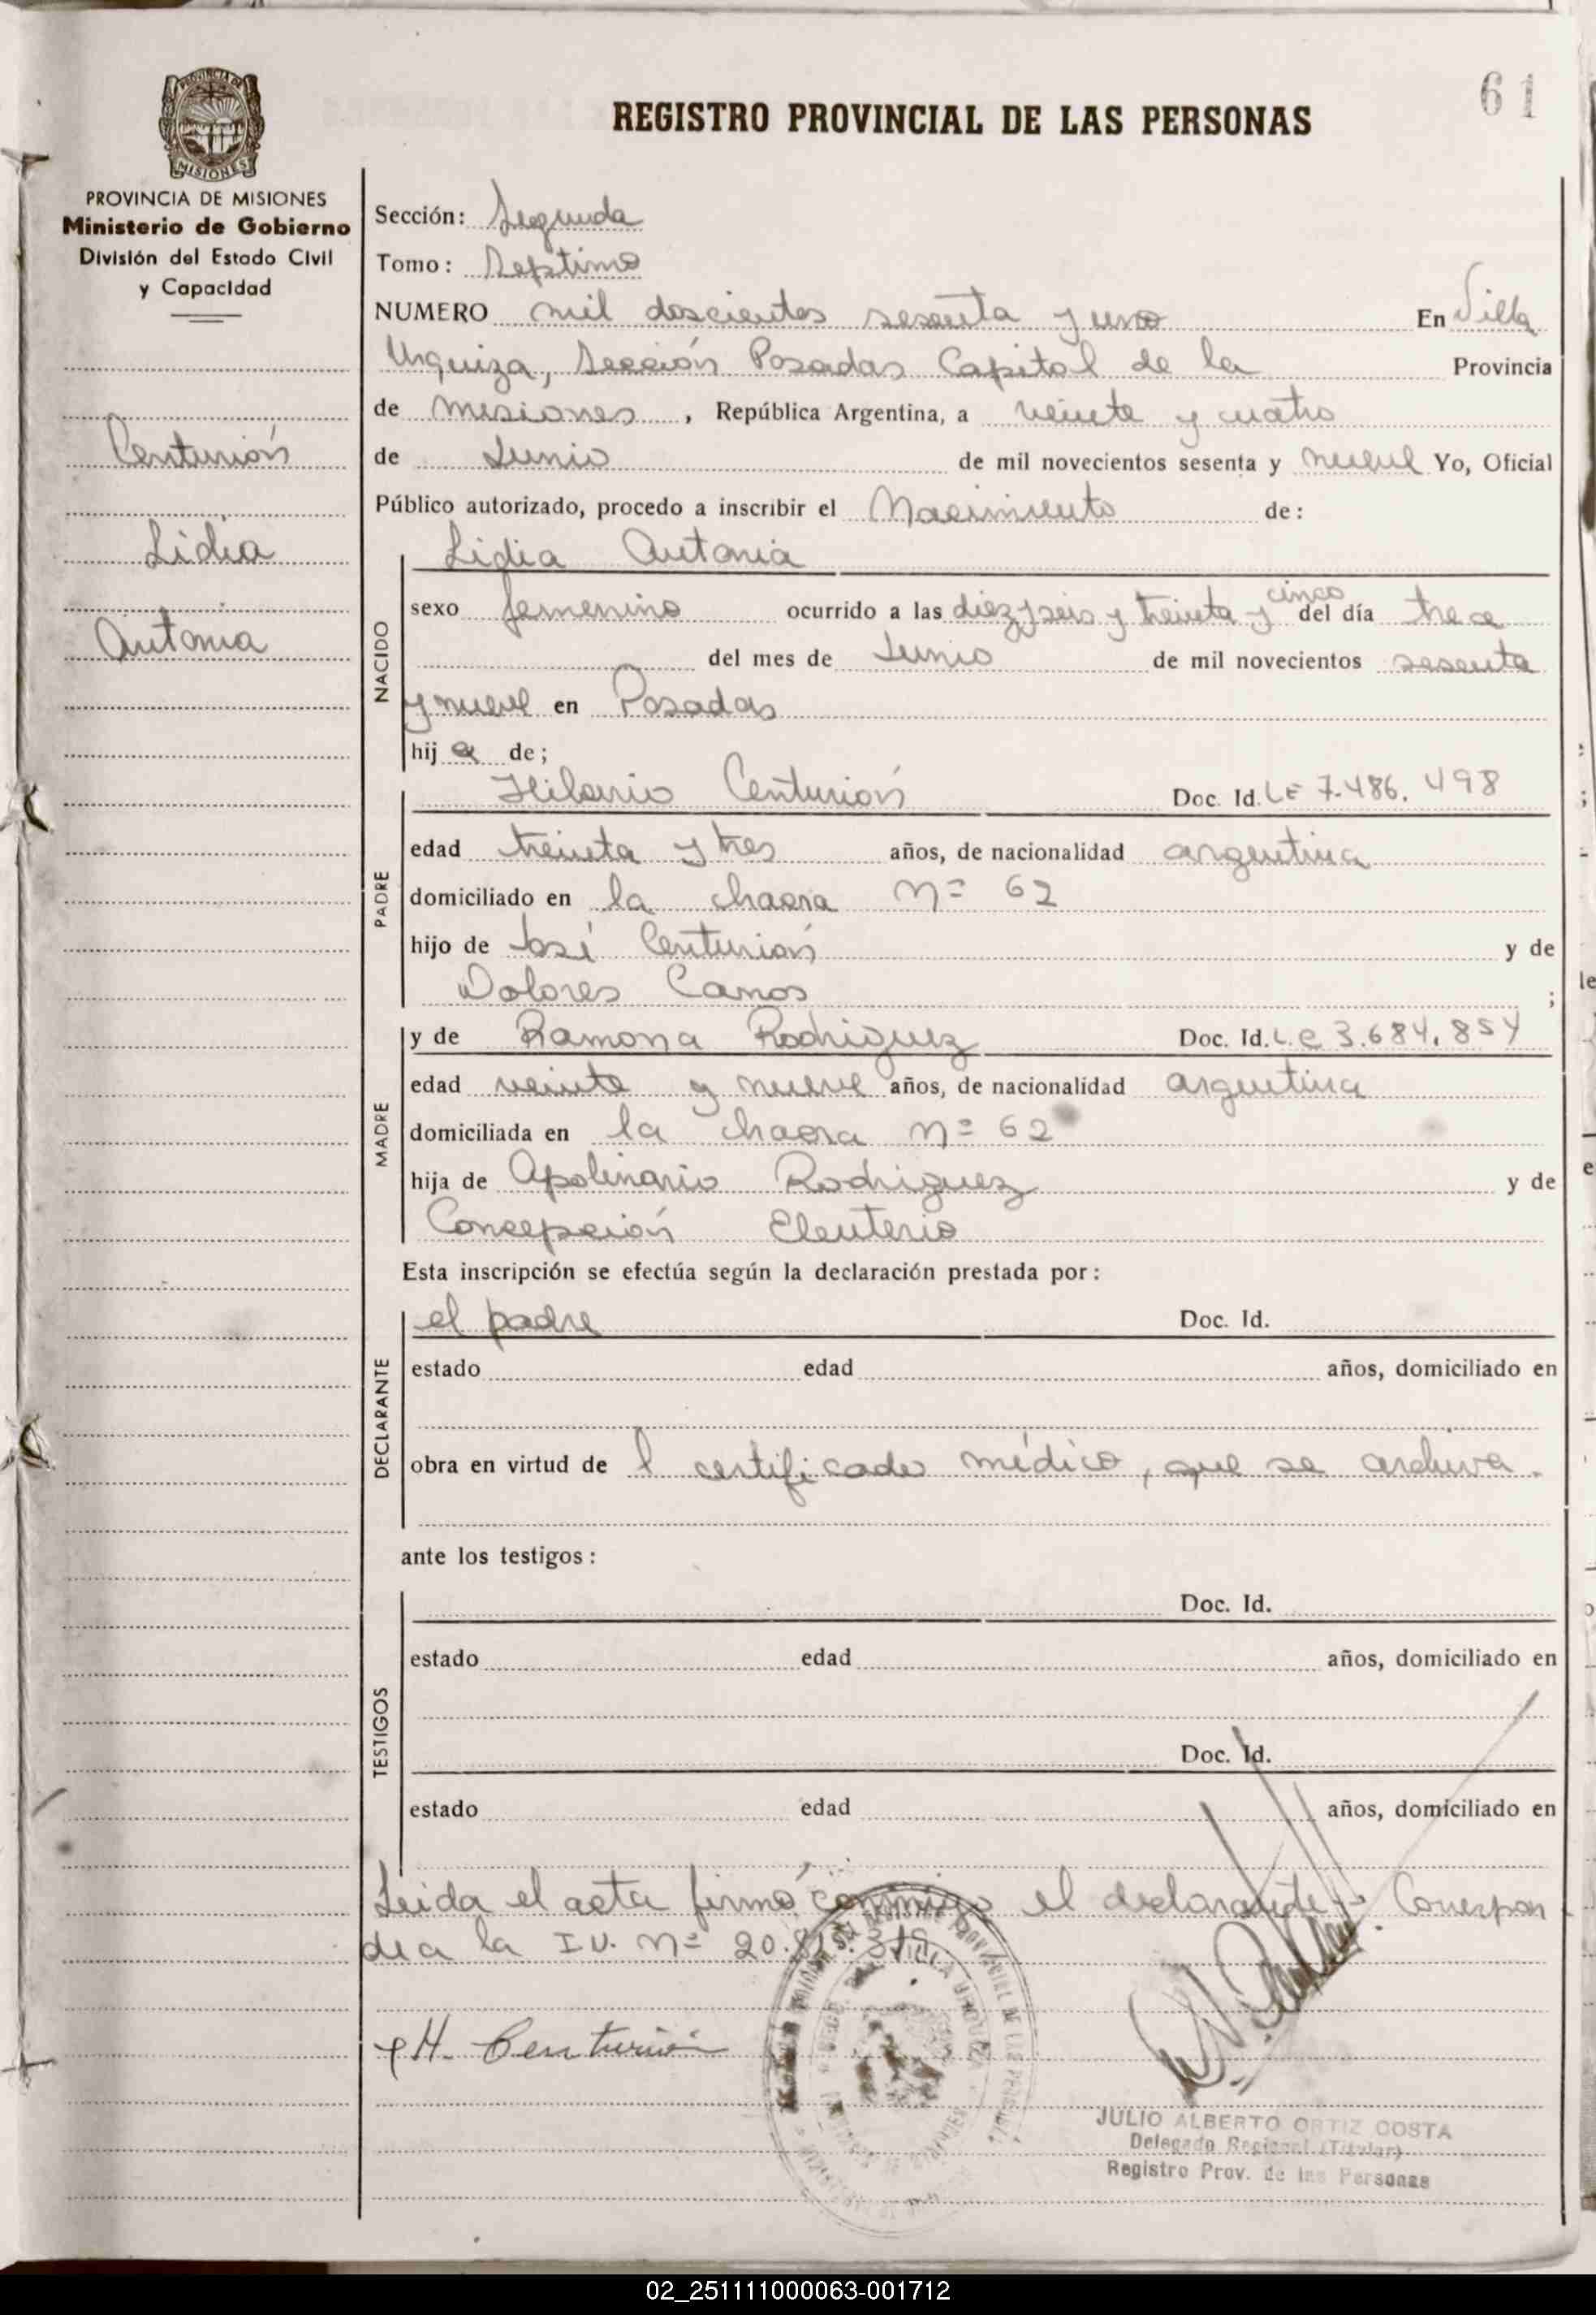 61
REGISTRO PROVINCIAL DE LAS PERSONAS
PROVINCIA DE MISIONES
Ministerio de Gobierno
División del Estado Civil
y Capacidad
Centurión
Lidia
Antonia
Sección: Segunda
Tomo: Septimo
NUMERO mil doscientos sesenta y uno En Villa
Urquiza, Sección Posadas Capital de la Provincia
de Misiones, República Argentina, a veinte y cuatro
de Junio de mil novecientos sesenta y nueve Yo, Oficial
Público autorizado, procedo a inscribir el Nacimiento de:
NACIDO
Lidia Antonia
sexo femenino ocurrido a las diez y seis y treinta y cinco del día trece
del mes de Junio de mil novecientos sesenta
y nueve en Posadas
hija de;
PADRE
Hilario Centurión Doc. Id. LE 7.486.498
edad treinta y tres años, de nacionalidad argentina
domiciliado en la chacra Nº 62
hijo de José Centurión y de
Dolores ;
MADRE
y de Ramona Rodriguez Doc. Id. L.C 3.684.854
edad veinte y nueve años, de nacionalidad argentina
domiciliada en la chacra Nº 62
hija de Apolinario Rodriguez y de
Concepción Eleuterio
Esta inscripción se efectúa según la declaración prestada por:
DECLARANTE
el padre Doc. Id.
estado edad años, domiciliado en
obra en virtud del certificado médico, que se archiva.
ante los testigos:
TESTIGOS
Doc. Id.
estado edad años, domiciliado en
Doc. Id.
estado edad años, domiciliado en
Leida el acta firmó conmigo el declarante - Correspon
dea la I.U. Nº
H. Centurión
VILLA URQUIZA
JULIO ALBERTO ORTIZ COSTA
Delegado Regional (Titular)
Registro Prov. de las Personas
02_251111000063-001712